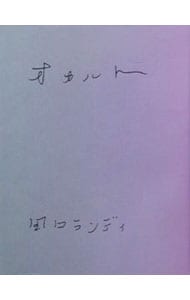 オカルト
田口ランディ